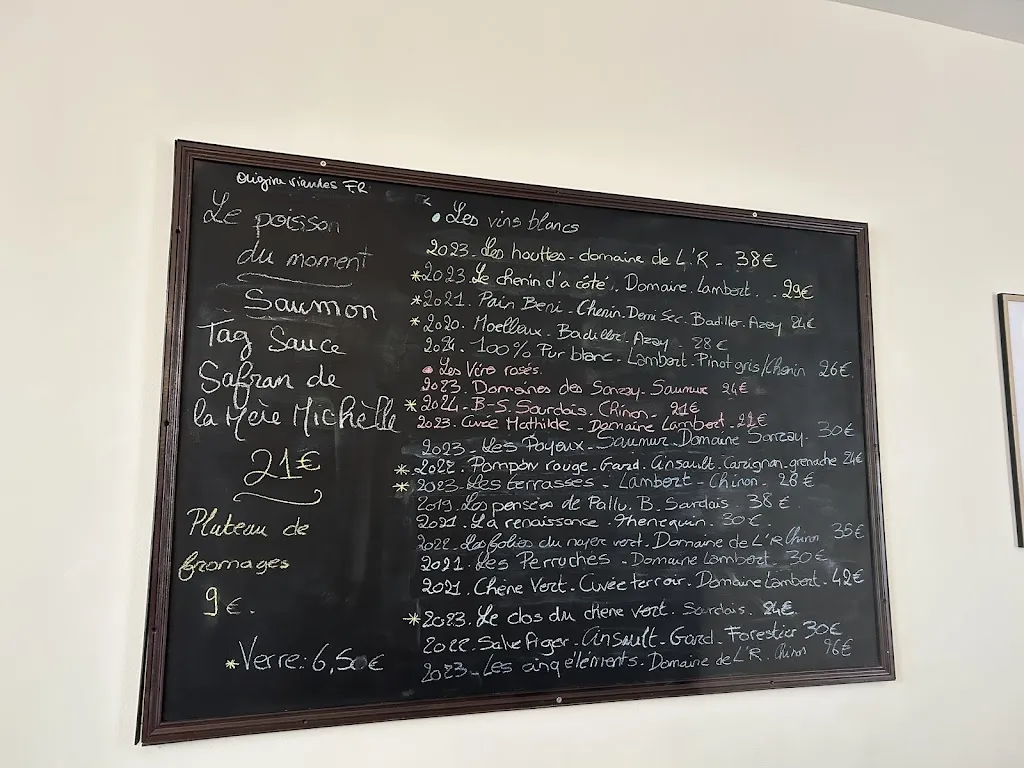 Origine viandes F.R
Le poisson
du moment
Saumon
Tag Sauce
Safran de
la Mère Michèlle
21€
Plateau de
fromages
9€.
*Verre: 6,50€
• Les vins blancs
2023. Les houttes - domaine de L'R - 38€
*2023. Le chenin d'a côté. Domaine. Lambert. - 29€
*2021. Pain Beni - Chenin. Demi Sec. Badiller. Azay 24€
*2020. Moelleux - Badiller. Azay - 28€
2021. 100% Pur blanc - Lambert. Pinot gris/Chenin 26€.
• Les Vins rosés.
2023. Domaines des Sanzay. Saumur 24€
*2024. B-S. Sourdais. Chinon. 21€
2023. Cuvée Mathilde - Domaine Lambert - 22€
2023. Les Poyeux. Saumur. Domaine Sanzay. 30€
*2022. Pompon rouge. Gard. Cinsault. Carignan. grenache 24€
*2023. Les terrasses - Lambert - Chinon. 26€
2019. Les pensées de Pallu. B. Sourdais 38€
2021. La renaissance. 30€.
2022. Les folies du noyer vert. Domaine de L'R Chinon 35€
2021. Les Perruches - Domaine Lambert. 30€
2021. Chêne Vert. Cuvée terroir. Domaine Lambert. 42€
*2023. Le clos du chêne vert. Sourdais. 24€.
2022. Cinsault - Gard. Forestier 30€
2023. Les cinq éléments. Domaine de L'R. Chinon 96€